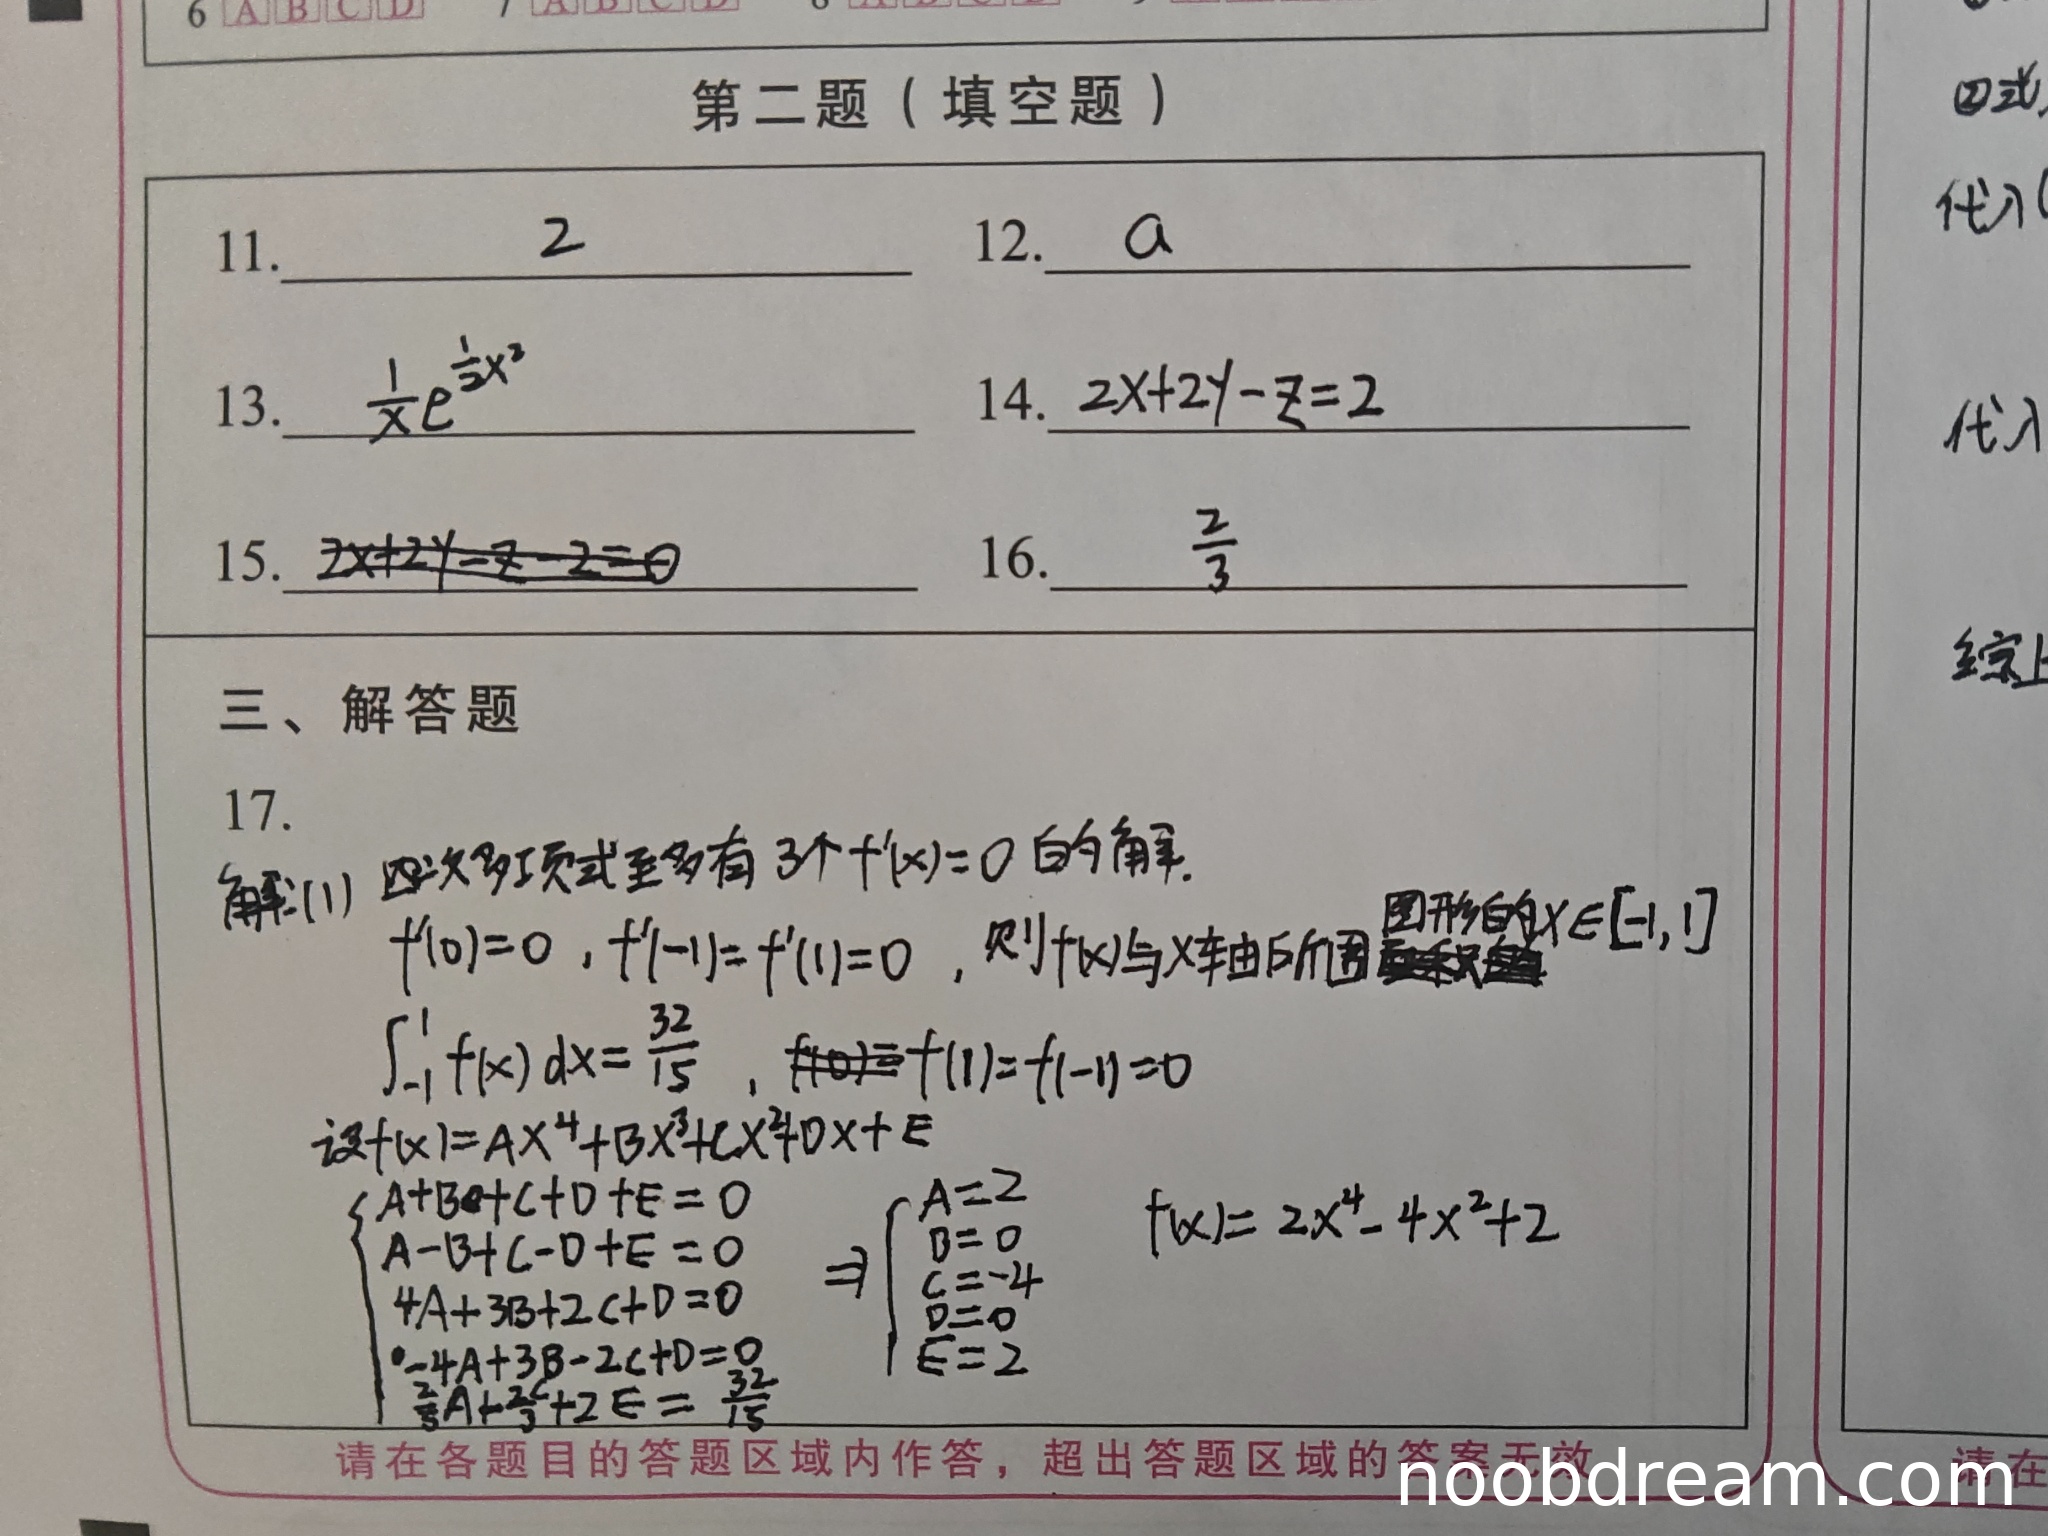 6 A B C D 7 A B C D 8 A B C D
第二题(填空题)
11. 2 12. a
13. \frac{1}{x}e^{\frac{1}{2}x^2} 14. 2x+2y-z=2
15. 2x+2y-z-2=0 16. \frac{2}{3}
三、解答题
17.
解:(1) 四次多项式至多有3个f'(x)=0的解.
f'(0)=0, f'(-1)=f'(1)=0, 则f(x)与x轴所围图形的x∈[-1,1]
∫_{-1}^{1} f(x)dx=\frac{32}{15}, f(0)= f(1)=f(-1)=0
设f(x)=Ax⁴+Bx³+Cx²+Dx+E
A+B+C+D+E=0
A-B+C-D+E=0
4A+3B+2C+D=0
-4A+3B-2C+D=0
\frac{2}{5}A+\frac{2C}{3}+2E=\frac{32}{15}
⇒
A=2
B=0
C=-4
D=0
E=2
f(x)=2x⁴-4x²+2
请在各题目的答题区域内作答，超出答题区域的答案无效
②式
代入
代入
综上
请在
noobdream.com